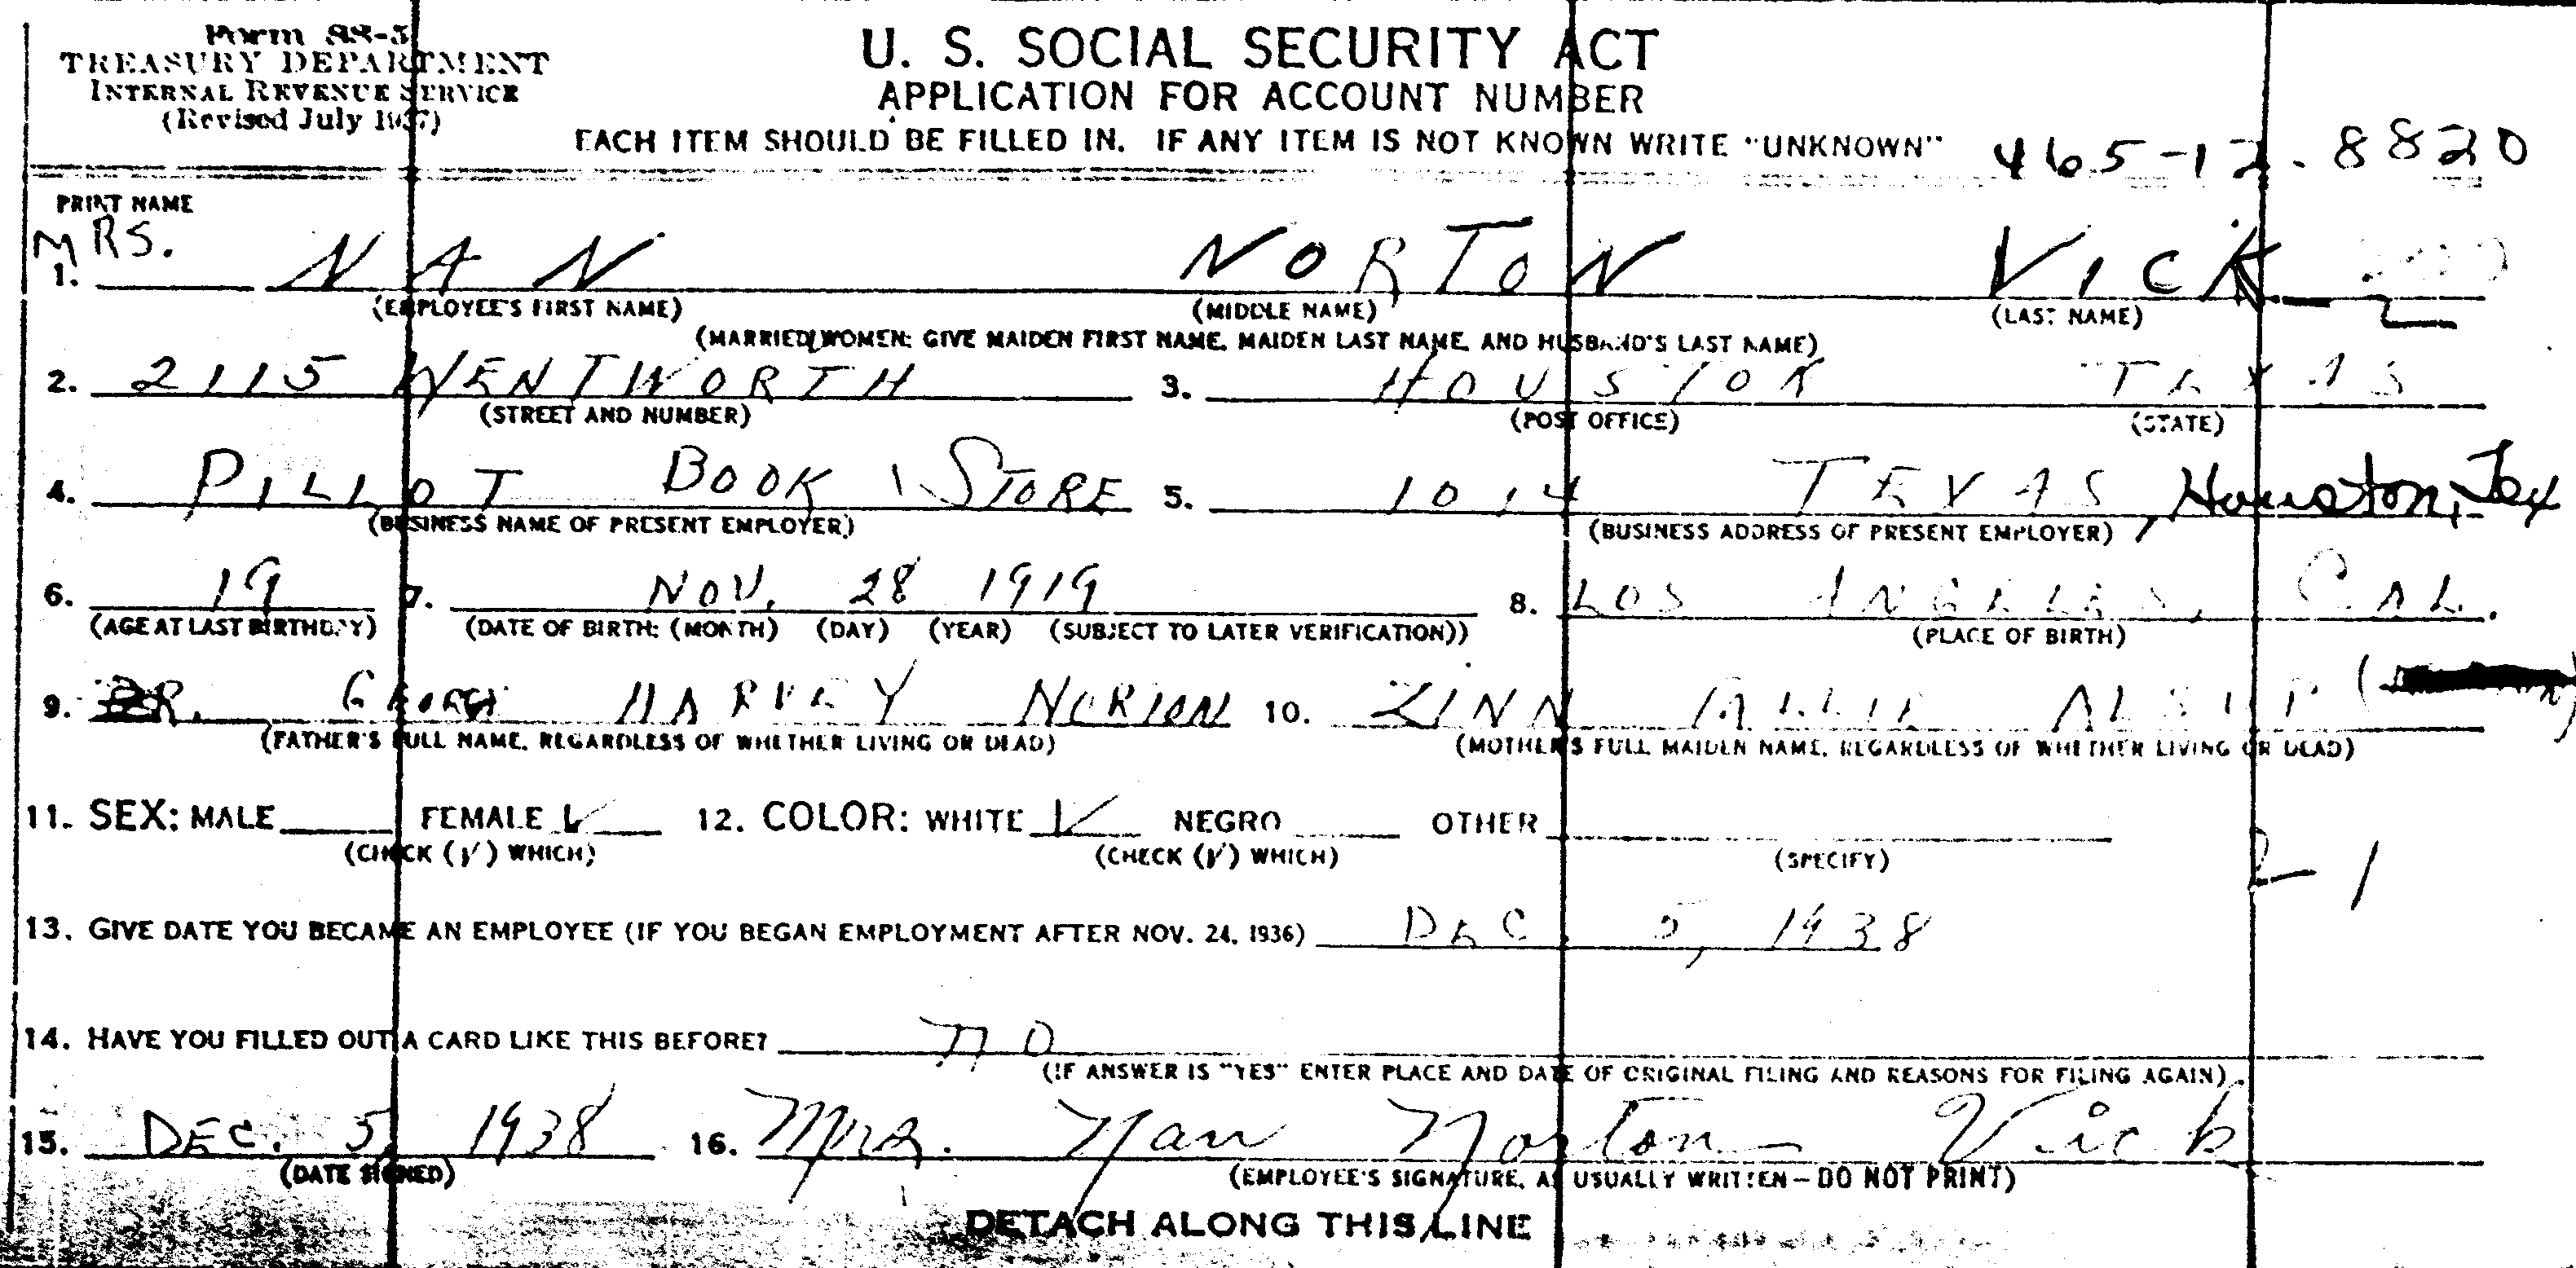 Form SS-5
TREASURY DEPARTMENT
INTERNAL REVENUE SERVICE
(Revised July 1937)
U. S. SOCIAL SECURITY ACT
APPLICATION FOR ACCOUNT NUMBER
EACH ITEM SHOULD BE FILLED IN. IF ANY ITEM IS NOT KNOWN WRITE "UNKNOWN" 465-12-8820
PRINT NAME
MRS.
1. NAN NORTON VICK
(EMPLOYEE'S FIRST NAME) (MIDDLE NAME) (LAST NAME)
(MARRIED WOMEN: GIVE MAIDEN FIRST NAME, MAIDEN LAST NAME, AND HUSBAND'S LAST NAME)
2. 2115 WENTWORTH 3. HOUSTON TEXAS
(STREET AND NUMBER) (POST OFFICE) (STATE)
4. PILLOT BOOK STORE 5. 1014 TEXAS, Houston, Tex
(BUSINESS NAME OF PRESENT EMPLOYER) (BUSINESS ADDRESS OF PRESENT EMPLOYER)
6. 19 7. NOV. 28 1919 8. LOS ANGELES, CAL.
(AGE AT LAST BIRTHDAY) (DATE OF BIRTH: (MONTH) (DAY) (YEAR) (SUBJECT TO LATER VERIFICATION)) (PLACE OF BIRTH)
9. DR. GEORGE HARVEY NORTON 10. ZINN ALLIE
(FATHER'S FULL NAME, REGARDLESS OF WHETHER LIVING OR DEAD) (MOTHER'S FULL MAIDEN NAME, REGARDLESS OF WHETHER LIVING OR DEAD)
11. SEX: MALE FEMALE ✓ 12. COLOR: WHITE ✓ NEGRO OTHER
(CHECK (✓) WHICH) (CHECK (✓) WHICH) (SPECIFY)
2-1
13. GIVE DATE YOU BECAME AN EMPLOYEE (IF YOU BEGAN EMPLOYMENT AFTER NOV. 24, 1936) DEC. 5, 1938
14. HAVE YOU FILLED OUT A CARD LIKE THIS BEFORE? NO
(IF ANSWER IS "YES" ENTER PLACE AND DATE OF ORIGINAL FILING AND REASONS FOR FILING AGAIN)
15. DEC. 5, 1938 16. Mrs. Nan Norton Vick
(DATE SIGNED) (EMPLOYEE'S SIGNATURE, AS USUALLY WRITTEN—DO NOT PRINT)
DETACH ALONG THIS LINE